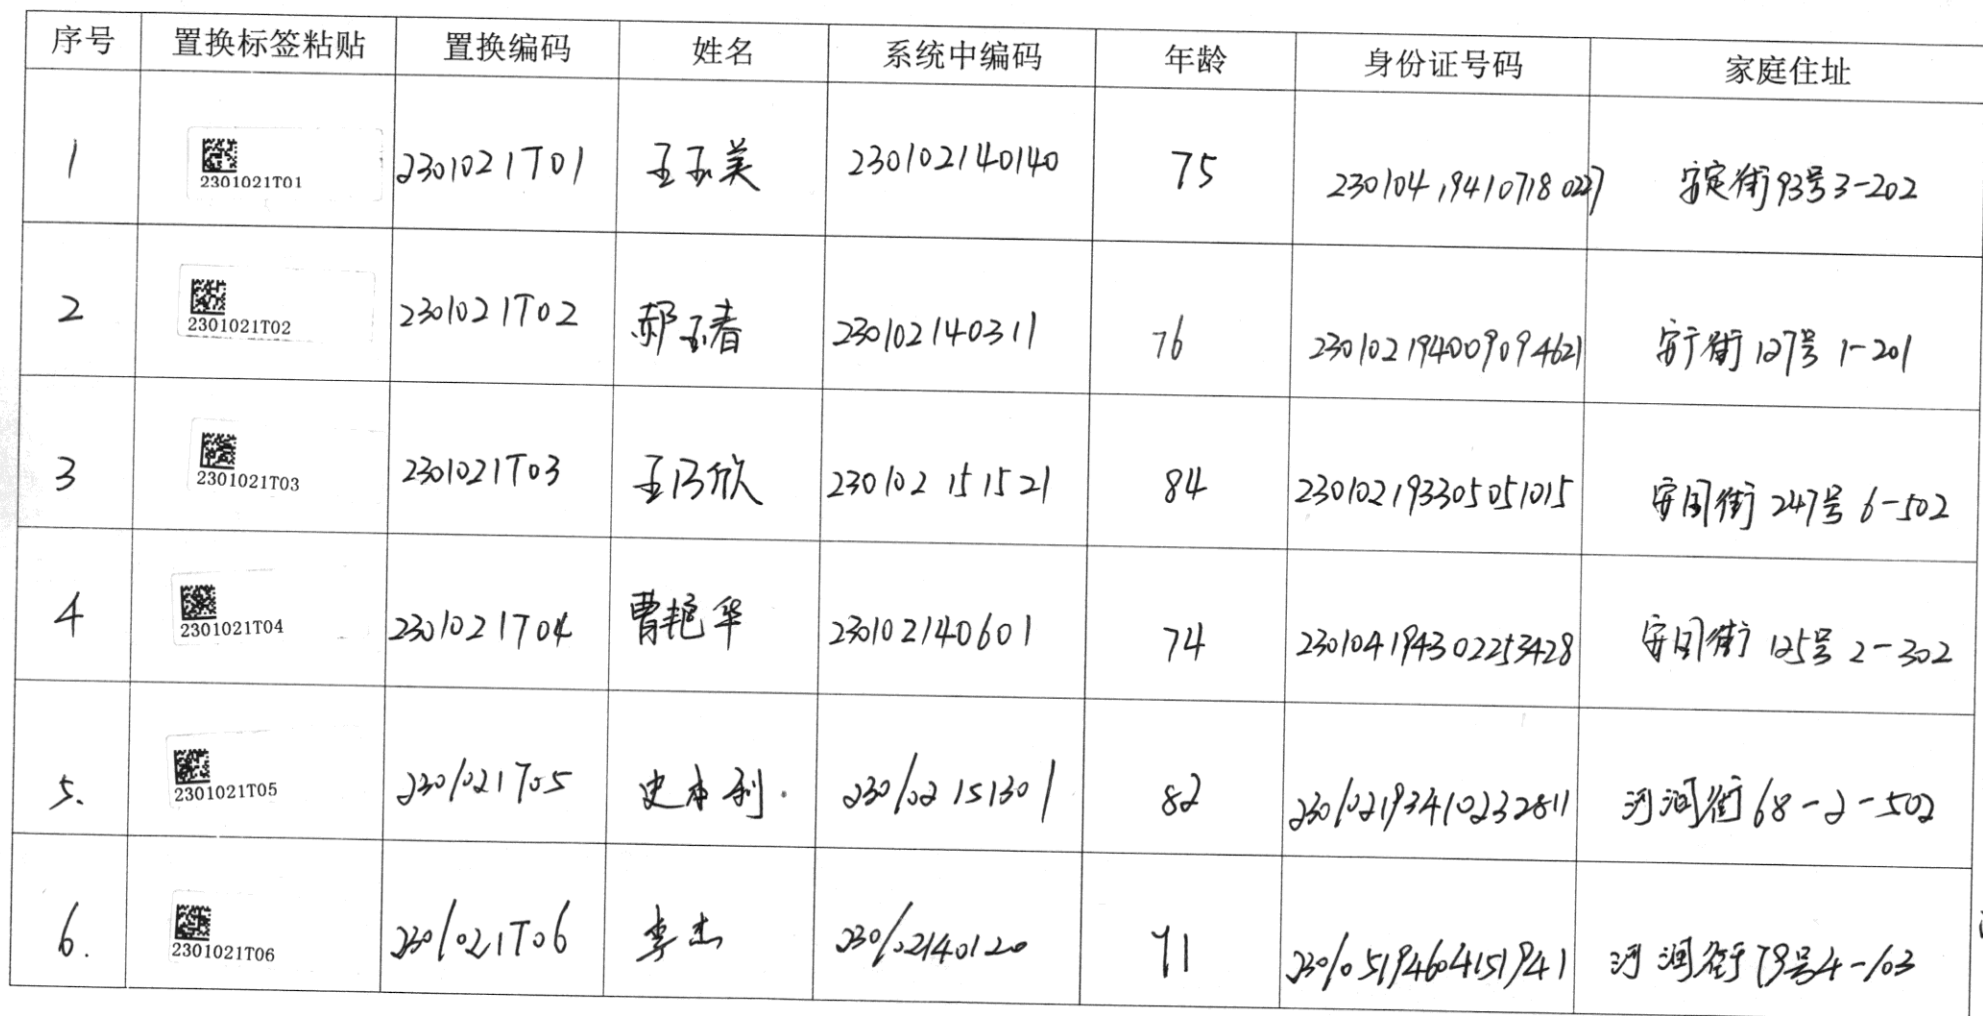 序号 置换标签粘贴 置换编码 姓名 系统中编码 年龄 身份证号码 家庭住址
1 2301021T01 2301021T01 王玉美 230102140140 75 230104194107180227 安定街93号3-202
2 2301021T02 2301021T02 郝玉春 230102140311 76 230102194009094621 安广街127号1-201
3 2301021T03 2301021T03 王乃欣 230102151521 84 230102193305051015 安国街247号6-502
4 2301021T04 2301021T04 曹艳华 230102140601 74 230104194302253428 安国街125号2-302
5. 2301021T05 2301021T05 史本利. 230102151301 82 230102193410232811 河润街68-2-502
6. 2301021T06 2301021T06 李杰 230102140120 71 230105194604151941 河润街79号4-103